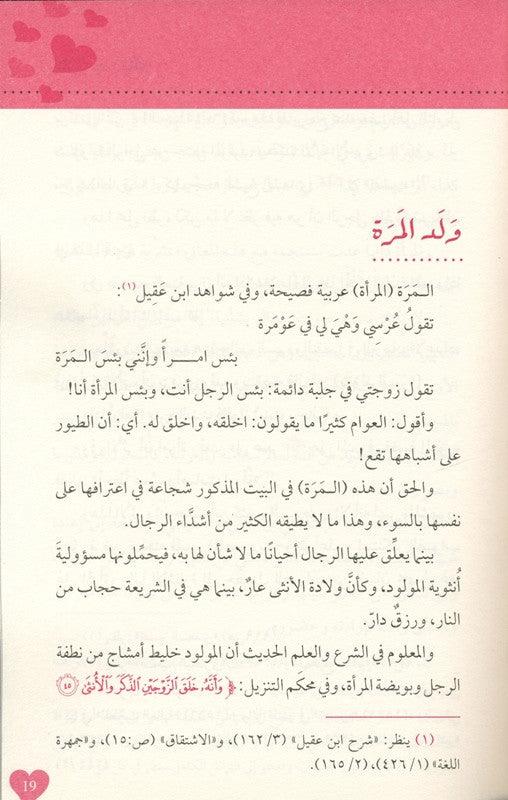 وَلَد المَرَة
الـمَرَة (المرأة) عربية فصيحة، وفي شواهد ابن عَقيل(١):
تقولُ عُرْسِي وَهْيَ لي في عَوْمَرة
بئس امـــرأً وإنَّني بئسَ الـمَرَة
تقول زوجتي في جلبة دائمة: بئس الرجل أنت، وبئس المرأة أنا!
وأقول: العوام كثيرًا ما يقولون: اخلقه، واخلق له. أي: أن الطيور
على أشباهها تقع!
والحق أن هذه (الـمَرَة) في البيت المذكور شجاعة في اعترافها على
نفسها بالسوء، وهذا ما لا يطيقه الكثير من أشدَّاء الرجال.
بينما يعلِّق عليها الرجال أحيانًا ما لا شأن لها به، فيحمِّلونها مسؤوليةَ
أُنثوية المولود، وكأنَّ ولادة الأنثى عارٌ، بينما هي في الشريعة حجاب من
النار، ورزقٌ دارّ.
والمعلوم في الشرع والعلم الحديث أن المولود خليط أمشاج من نطفة
الرجل وبويضة المرأة، وفي محكَم التنزيل: ﴿وَأَنَّهُۥ خَلَقَ ٱلزَّوۡجَيۡنِ ٱلذَّكَرَ وَٱلۡأُنثَىٰ ٤٥
(١) ينظر: «شرح ابن عقيل» (٣/ ١٦٢)، و«الاشتقاق» (ص:١٥)، و«جمهرة
اللغة» (١/ ٤٢٦)، (٢/ ١٦٥).
19